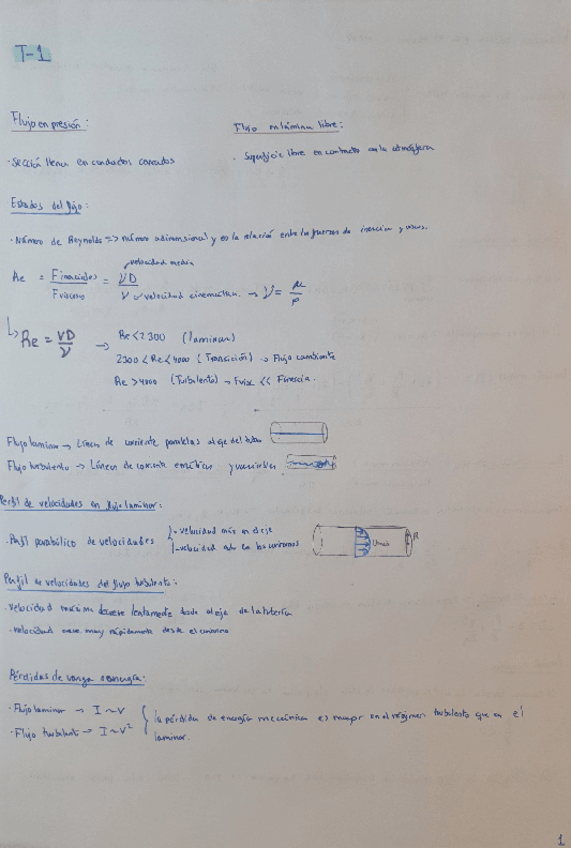 T-1
Flujo en presión:
Flujo en lámina libre:
· Sección llena en conductos cerrados
· Superficie libre en contacto con la atmósfera
Estados del flujo:
· Número de Reynolds => número adimensional y es la relación entre las fuerzas de inercia y visc.
velocidad media
Re = Finerciales / Fviscosas = VD / ν → velocidad cinemática → ν = μ/ρ
↳ Re = VD/ν → Re < 2300 (laminar)
2300 < Re < 4000 (Transición) → Flujo cambiante
Re > 4000 (Turbulento) → Fvisc << Finercia.
Flujo laminar → Líneas de corriente paralelas al eje del tubo
Flujo turbulento → Líneas de corriente erráticas y variables.
Perfil de velocidades en flujo laminar:
· Perfil parabólico de velocidades
- velocidad máx en el eje
- velocidad nula en los contornos
Umax
R
Perfil de velocidades del flujo turbulento:
· Velocidad máxima decrece lentamente desde el eje de la tubería
· velocidad crece muy rápidamente desde el contorno
Pérdidas de carga o energía:
· Flujo laminar → I ~ V
· Flujo turbulent → I ~ V²
la pérdida de energía mecánica es mayor en el régimen turbulento que en el
laminar.
1